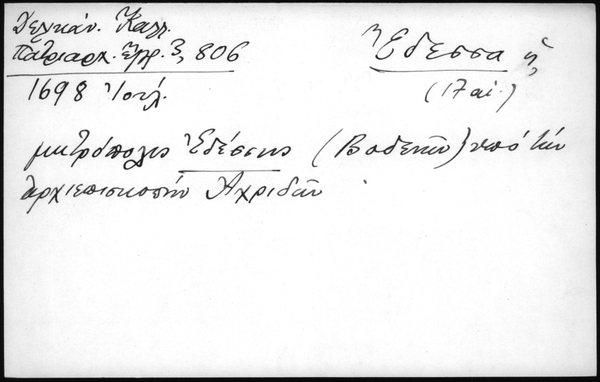 Δελικάν. Καλλ.
Πατριαρχ. ἔγγρ. 3, 806
1698 Ἰουλ.
Ἔδεσσα ἡ
(17 αἰ.)
μητρόπολις Ἐδέσσης (Βοδενῶν) ὑπό τήν
ἀρχιεπισκοπήν Ἀχριδῶν